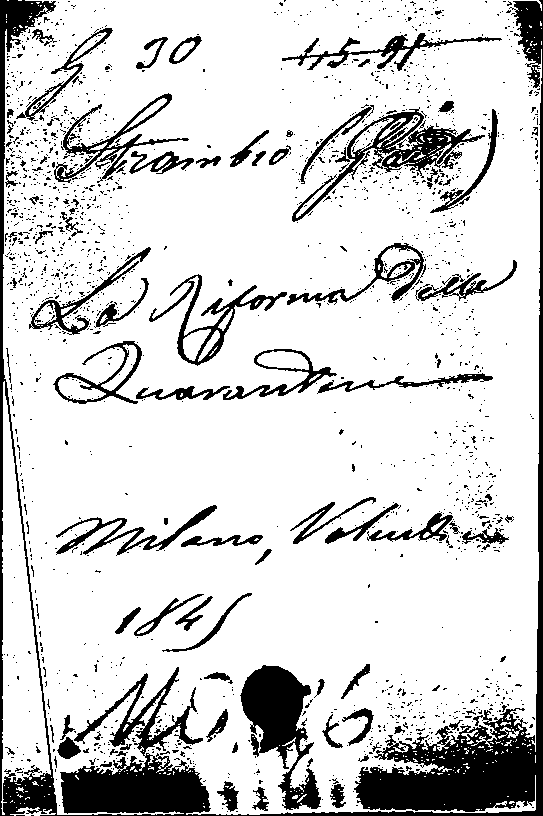 G. 30 1,5.91
Strambio (Gaet.)
La Riforma delle
Quarantine
Milano,
1845